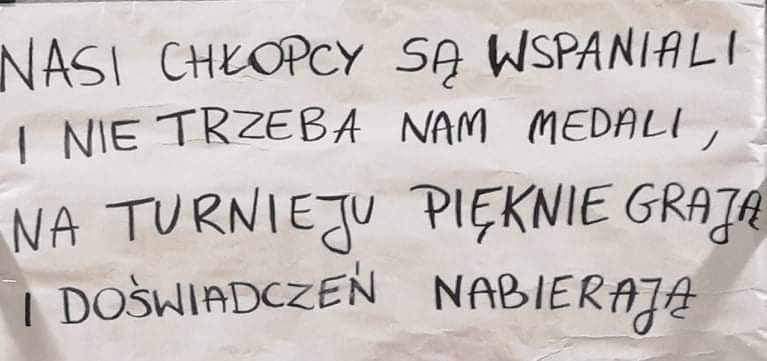 NASI CHŁOPCY SĄ WSPANIALI
I NIE TRZEBA NAM MEDALI,
NA TURNIEJU PIĘKNIE GRAJĄ
I DOŚWIADCZEŃ NABIERAJĄ